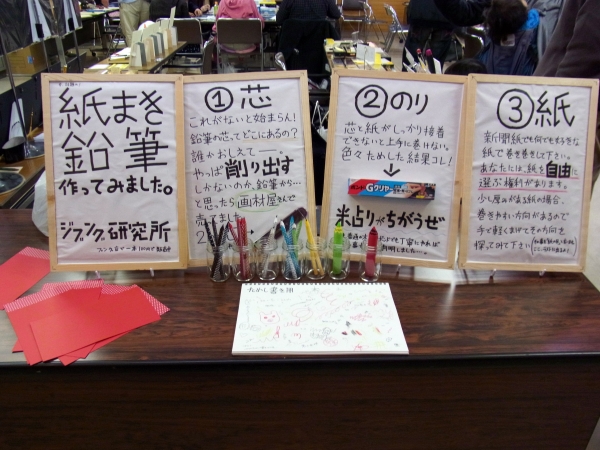 紙まき
鉛筆
作ってみました。
ジプンク研究所
①芯
これがないと始まらん！
鉛筆の芯ってどこにあるの？
誰かおしえてー。
やっぱ削り出す
しかないのか、鉛筆から…
と思ったら画材屋さんで
売ってました
②のり
芯と紙がしっかり接着
できないと上手に巻けない。
色々ためした結果コレ！
↓
Gクリヤー
粘りがちがうぜ
③紙
新聞紙でも何でも好きな
紙で巻き巻きして下さい。
あなたには、紙を自由に
選ぶ権利があります。
少し厚みがある紙の場合、
巻きやすい方向があるので
手で軽くまげてその方向を
探ってみて下さい
ためし書き用